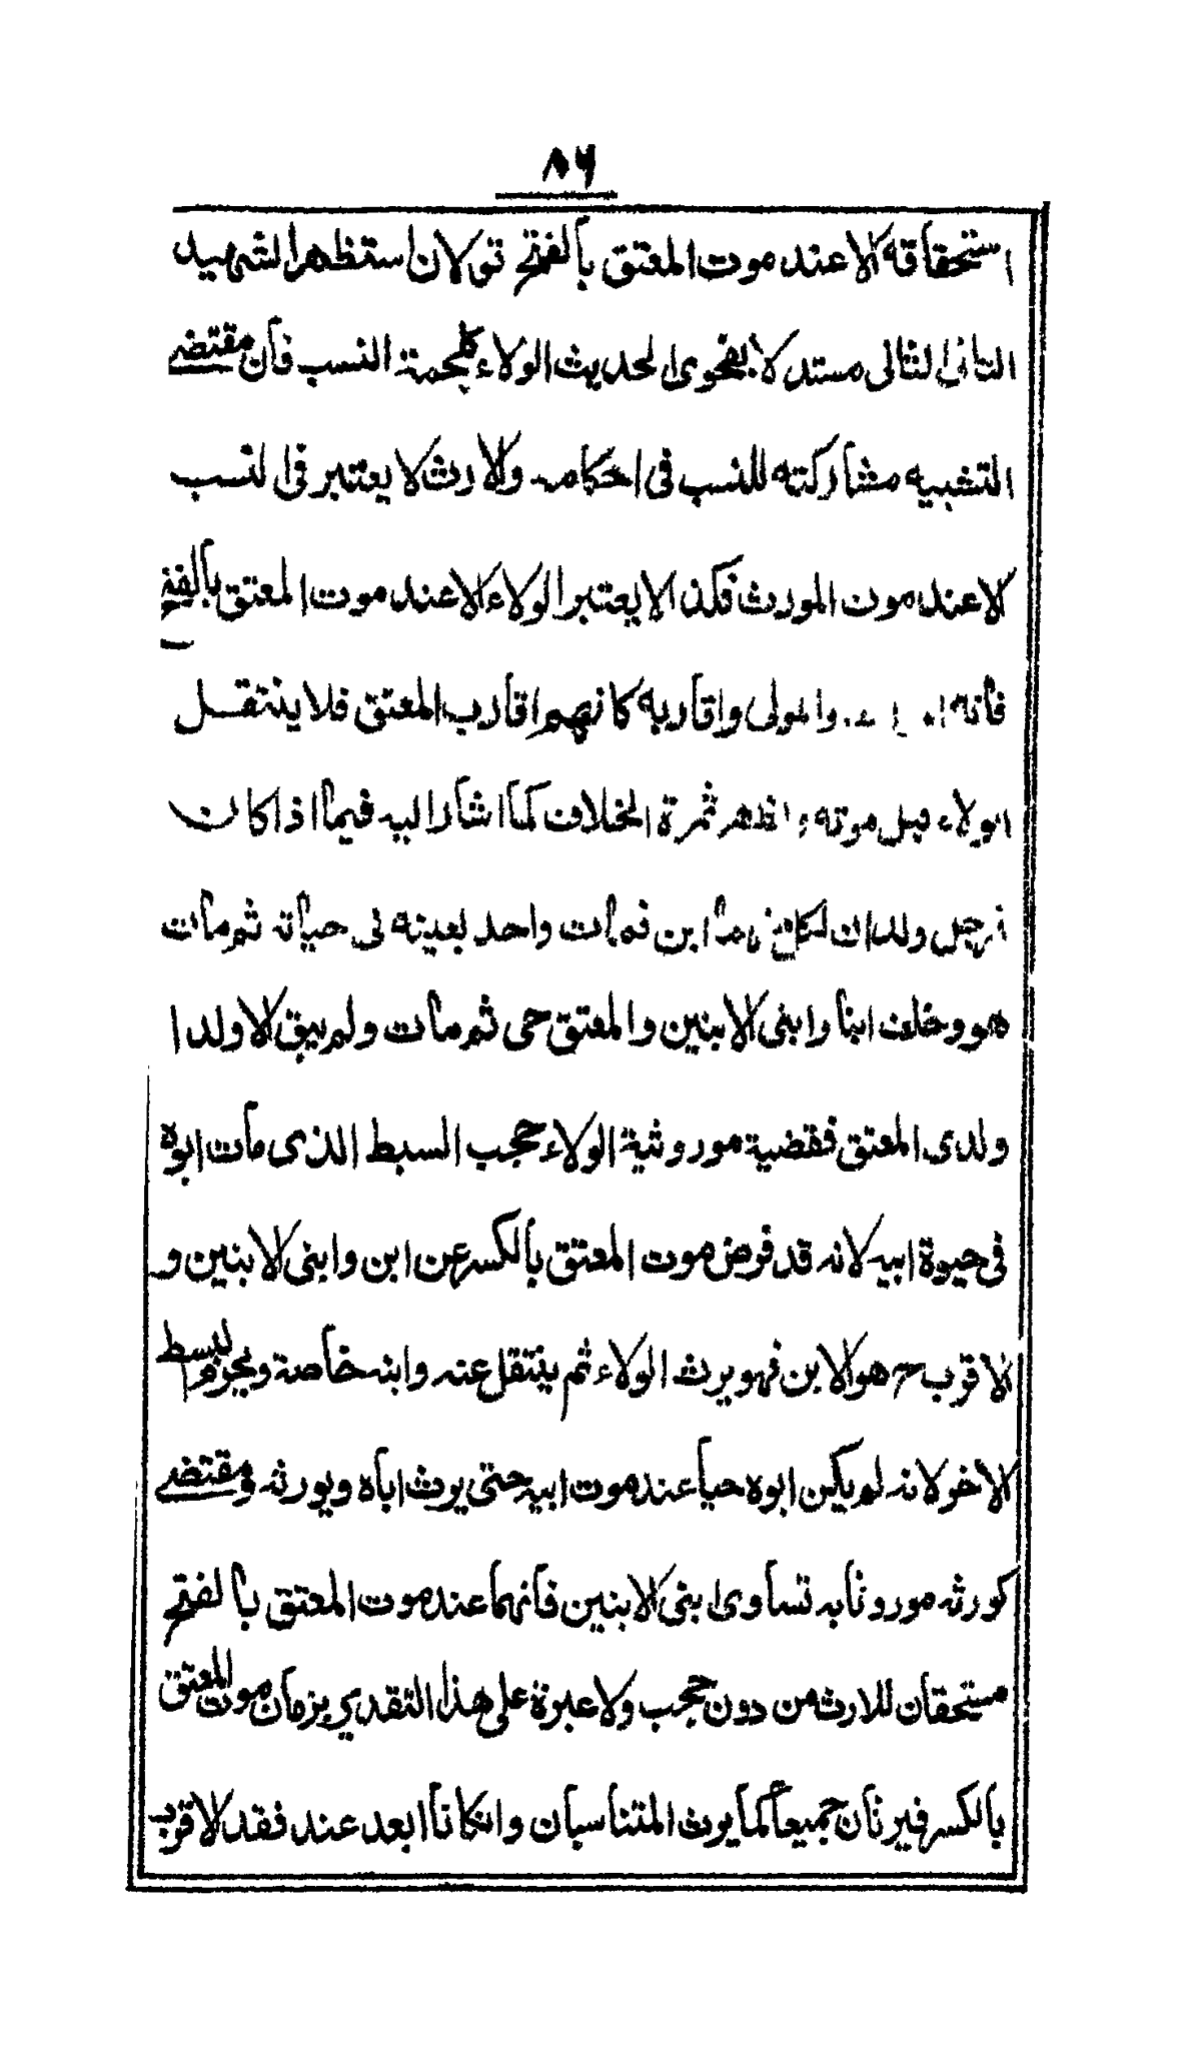 ٨٦
استحقاقه الا عند موت المعتق بالفتح قولان استظهر الشهيد
الثانى الثانى مستدلا بفحوى الحديث الولاء كلحمة النسب فان مقتضى
التشبيه مشاركته للنسب فى احكامه والارث لا يعتبر فى النسب
الا عند موت المورث فكذا لا يعتبر الولاء الا عند موت المعتق بالفتح
فانه والمولى واقاربه كانهم اقارب المعتق فلا ينتقل
الولاء قبل موته وتظهر ثمرة الخلاف كما اشار اليه فيما اذا كان
لرجل ولدان لكل منهما ابن فمات واحد بعينه فى حياته ثم مات
هو وخلف ابنا وابنى الابنين والمعتق حى ثم مات ولم يبق الا ولدا
ولدى المعتق فقضية موروثية الولاء حجب السبط الذى مات ابوه
فى حيوة ابيه لانه قد فرض موت المعتق بالكسر عن ابن وابنى الابنين و
الاقرب ح هو الابن فهو يرث الولاء ثم ينتقل عنه وابنه خاصة ويحرم السبط
الاخر لانه لم يكن ابوه حيا عند موت ابيه حتى يرث اباه ويورثه ومقتضى
كورثه موروثا به تساوى ابنى الابنين فانهما عند موت المعتق بالفتح
مستحقان للارث من دون حجب ولا عبرة على هذا التقدير بزمان موت المعتق
بالكسر فيرثان جميعا كما يرث المتناسبان وانكانا ابعد عند فقد الاقرب